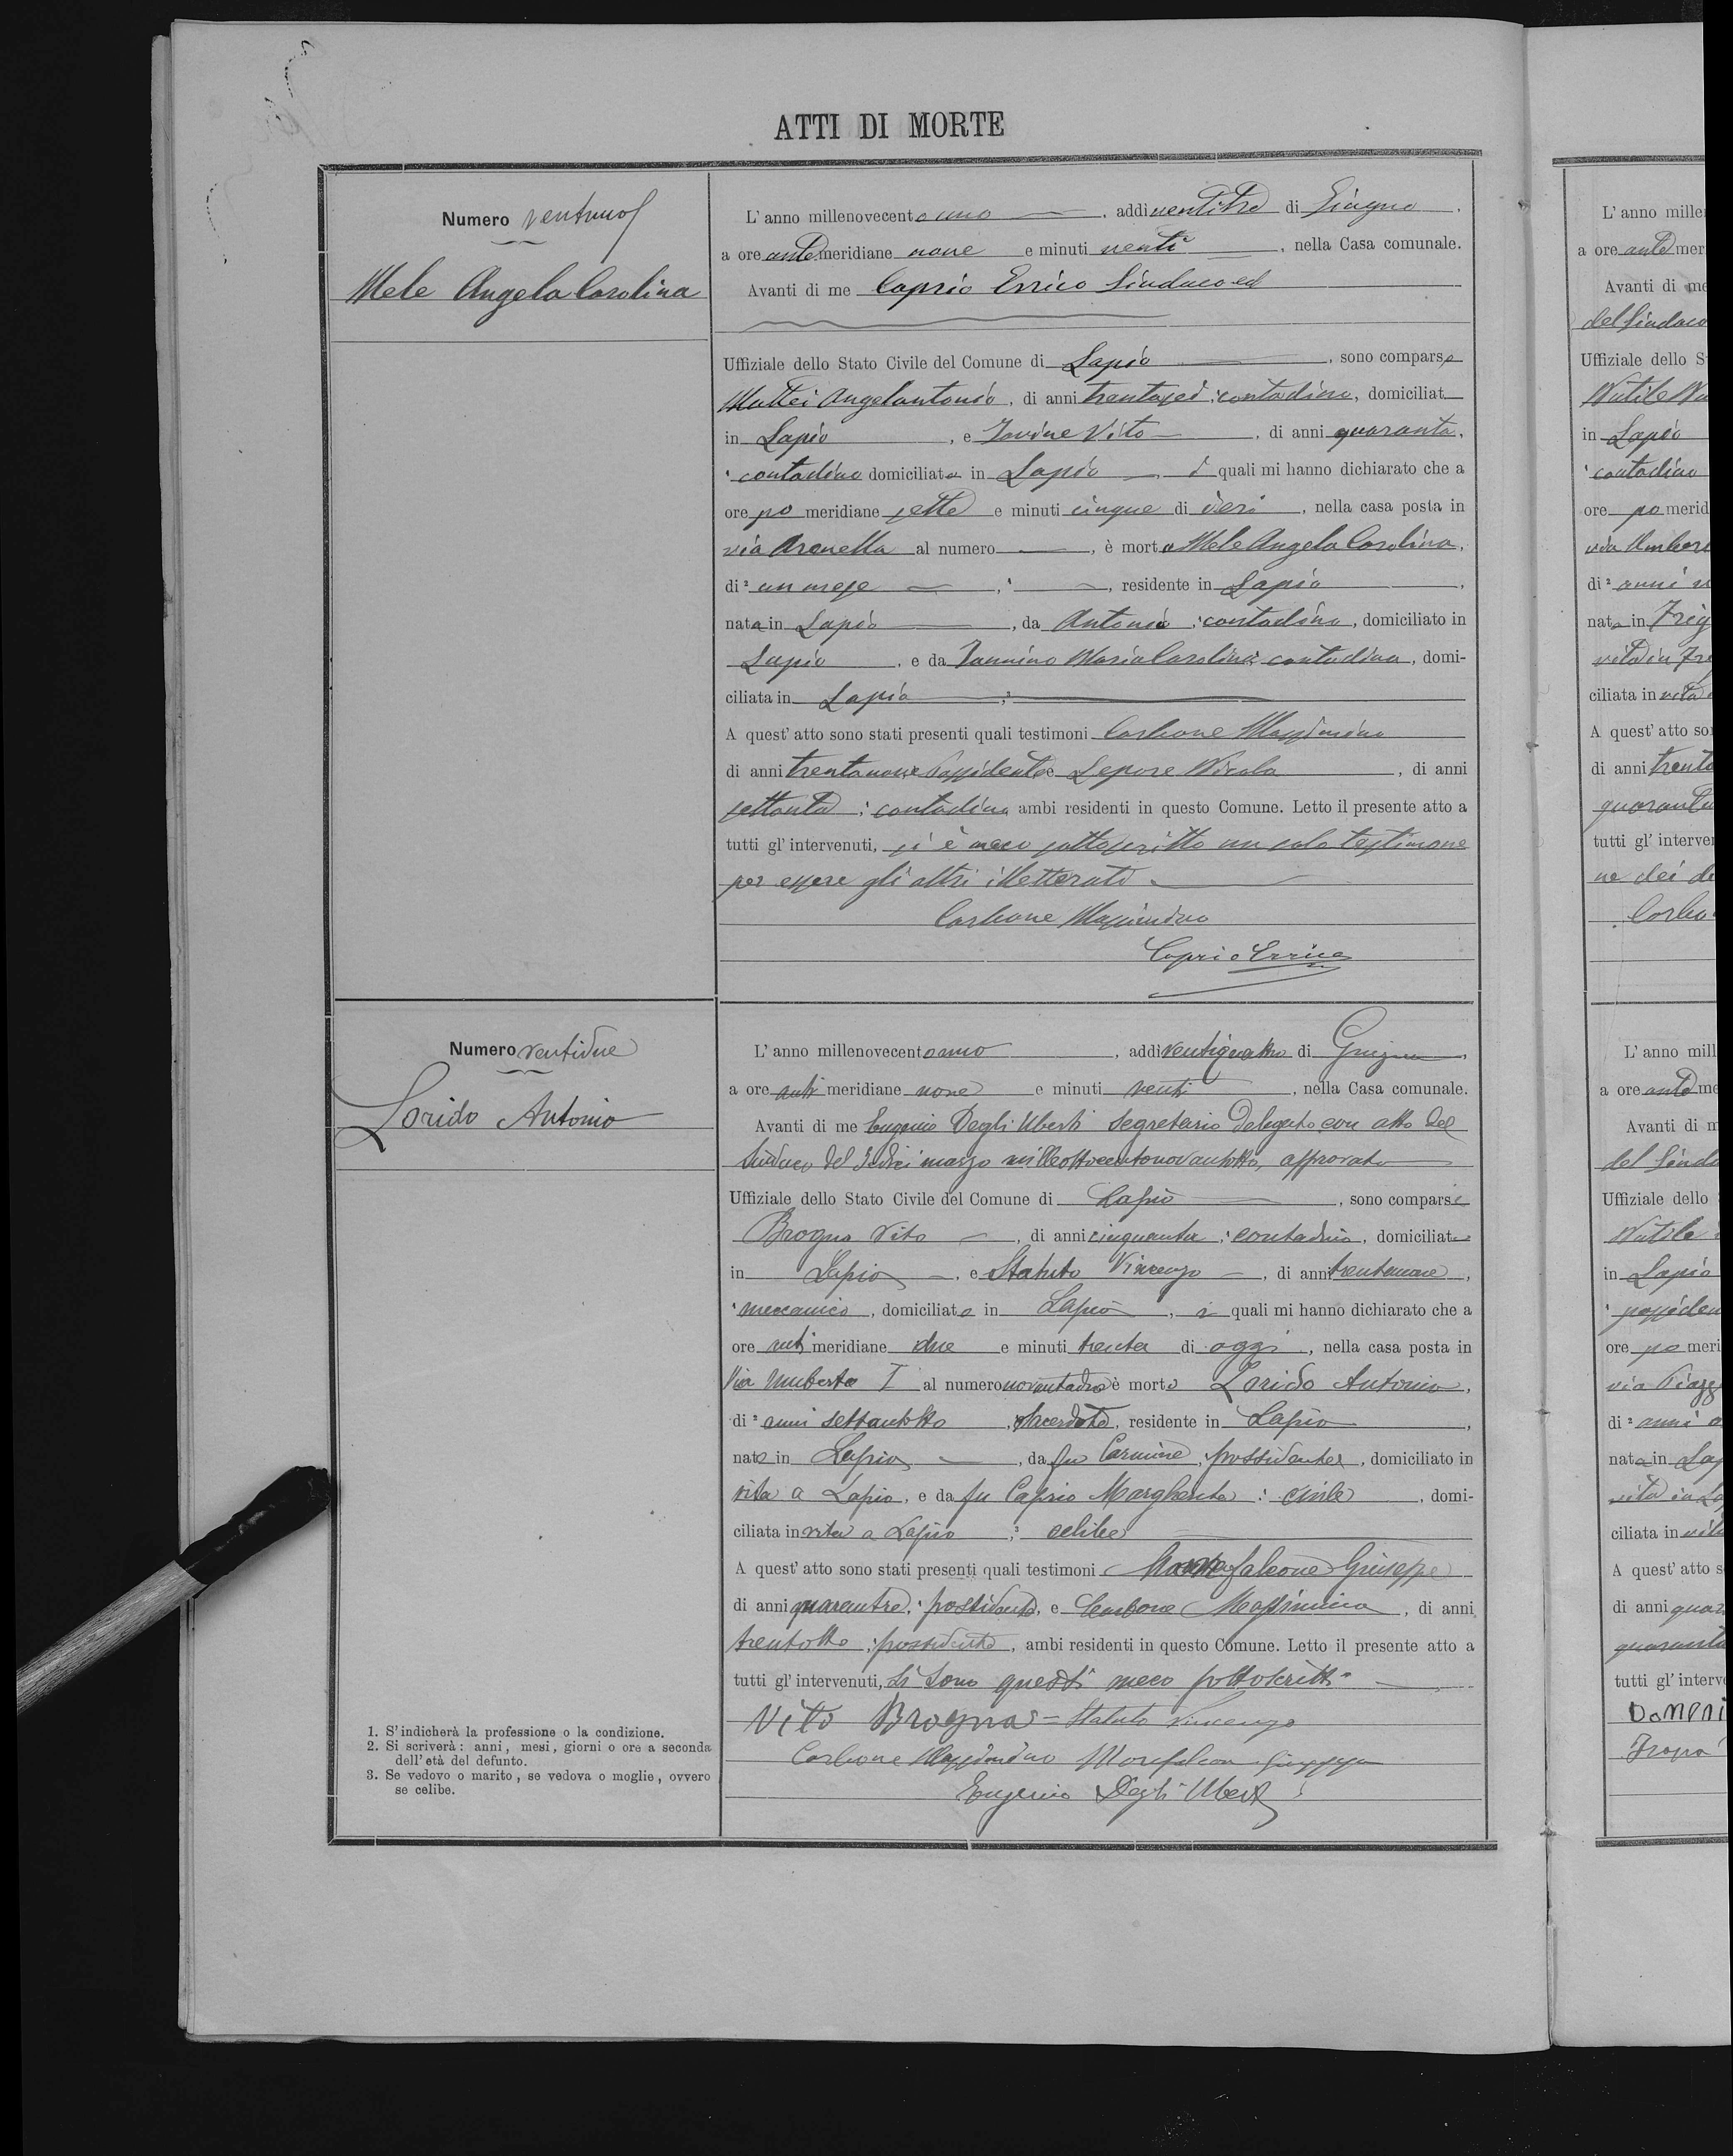 ATTI DI MORTE
Numero ventuno
Mele Angela Carolina
L'anno millenovecento uno, addì ventitre di Giugno,
a ore ante meridiane nove e minuti venti, nella Casa comunale.
Avanti di me Caprio Errico Sindaco ed
Uffiziale dello Stato Civile del Comune di Lapio, sono comparsi
Mattei Angelantonio, di anni trentasei, contadino, domiciliat
in Lapio, e Iovine Vito, di anni quaranta,
contadino domiciliato in Lapio, i quali mi hanno dichiarato che a
ore po meridiane sette e minuti cinque di ieri, nella casa posta in
via Arenella al numero, è morta Mele Angela Carolina,
di ² un mese, residente in Lapio,
nata in Lapio, da Antonio, contadino, domiciliato in
Lapio, e da Iannino Maria Carolina contadina, domi-
ciliata in Lapio
A quest' atto sono stati presenti quali testimoni Carbone Massimino
di anni trentanove Possidente e Lepore Nicola, di anni
settanta, contadino ambi residenti in questo Comune. Letto il presente atto a
tutti gl' intervenuti, si è meco sottoscritto un solo testimone
per essere gli altri illetterati
Carbone Massimino
Caprio Errico
Numero ventidue
Lorido Antonio
L'anno millenovecento uno, addì ventiquattro di Giugno,
a ore anti meridiane nove e minuti venti, nella Casa comunale.
Avanti di me Eugenio Degli Uberti Segretario Delegato con atto del
Sindaco del sedici marzo milleottocentonovantotto, approvato
Uffiziale dello Stato Civile del Comune di Lapio, sono comparsi
Brogna Vito, di anni cinquanta, contadino, domiciliato
in Lapio, e Statuto Vincenzo, di anni trentanove,
meccanico, domiciliato in Lapio, i quali mi hanno dichiarato che a
ore anti meridiane due e minuti trenta di oggi, nella casa posta in
Via Umberto I al numero novantadue è morto Lorido Antonio,
di ² anni settantotto, Sacerdote, residente in Lapio,
nato in Lapio, da fu Carmine, possidente, domiciliato in
vita a Lapio, e da fu Caprio Margherita, civile, domi-
ciliata in vita a Lapio, ³ celibe
A quest' atto sono stati presenti quali testimoni Monfalcone Giuseppe
di anni quarantre, possidente, e Carbone Massimino, di anni
trentotto, possidente, ambi residenti in questo Comune. Letto il presente atto a
tutti gl' intervenuti, si sono questi meco sottoscritti
Vito Brogna = Statuto Vincenzo
Carbone Massimino Monfalcon Giuseppe
Eugenio Degli Uberti
1. S'indicherà la professione o la condizione.
2. Si scriverà: anni, mesi, giorni o ore a seconda
dell' età del defunto.
3. Se vedovo o marito, se vedova o moglie, ovvero
se celibe.
L'anno mille
a ore ante mer
Avanti di me
del Sindaco
Uffiziale dello S
in Lapio
contadino
ore po merid
di ² anni
nata in
ciliata in vita
A quest' atto so
di anni
tutti gl' interve
ne dei
Carbo
L'anno mill
a ore ante me
Avanti di m
del Sinda
Uffiziale dello
in Lapio
possiden
ore po meri
via Piazz
di ² anni
nata in Lap
vita in La
ciliata in
A quest' atto s
di anni quar
quaranta
tutti gl' interv